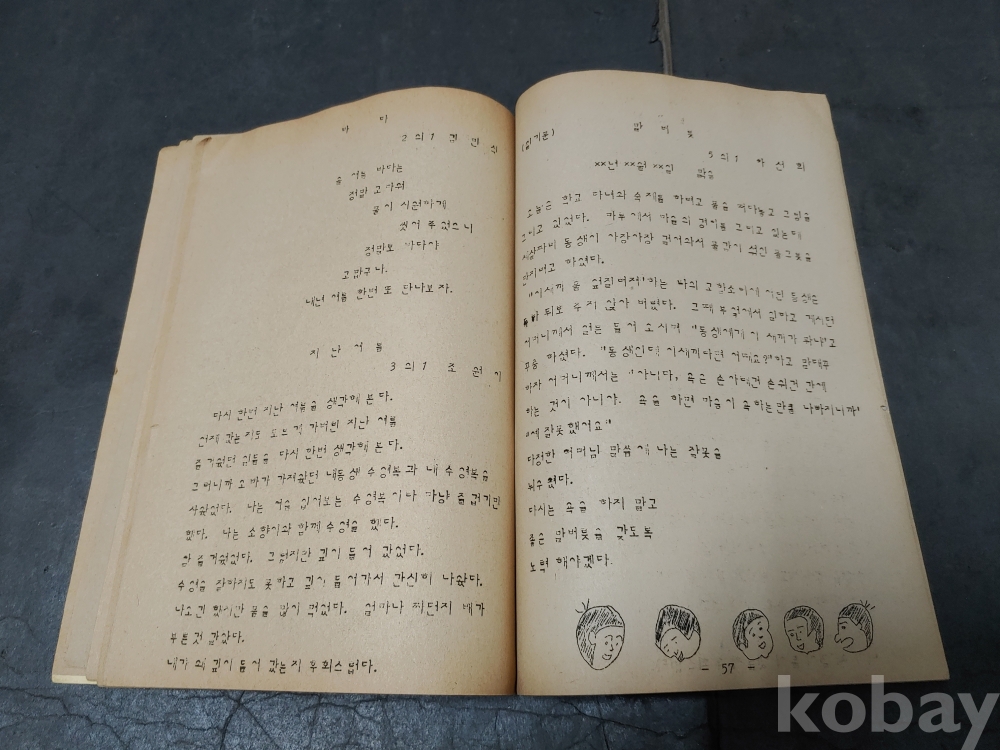 바 다
2의1
여름 바다는
정말 고마워
몸이 시원하게
씻어 주었으니
정말로 바다야
고맙구나.
내년 여름 한번 또 만나보자.
지난 여름
3의1 조
다시 한번 지난 여름을 생각해 본다.
언제 갔는지도 모르게 가버린 지난 여름
즐거웠던 일들을 다시 한번 생각해 본다.
그러니까 오빠가 가져왔던 내동생 수영복과 내 수영복을
나는 처음 입어보는 수영복이라 마냥 즐겁기만
했다. 나는 소향이와 함께 수영을 했다.
참 즐거웠었다. 그렇지만 깊이 들어 갔었다.
수영을 잘하지도 못하고 깊이 들어가서 간신히 나왔다.
나오긴 했지만 물을 많이 먹었다. 얼마나 찌던지 배가
부른것 같았다.
내가 왜 깊이 들어 갔는지 후회스럽다.
(일기문)
말 버 릇
5의1
xx년 xx월 xx일 맑음
오늘은 학교 다녀와 숙제를 하려고 물을 떠다놓고 그림을
그리고 있었다. 마루에서 마을의 정이를 그리고 있는데
동생이 아장아장 걸어와서 물감이 섞인 물그릇을
만지려고 하였다.
"이새끼 물 엎질러져"하는 나의 고함소리에 어린 동생은
주지 않아 버렸다. 그때 부엌에서 일하고 계시던
어머니께서 얼른 들어 오시며 "동생에게 이 새끼가 뭐냐"고
꾸중 하셨다. "동생인데 이새끼라면 어때요?"하고 말대꾸
하자 어머니께서는 "아니다, 욕은 손아래건 손위건 간에
하는 것이 아니야. 욕을 하면 마음이 욕하는만큼 나빠지니까"
"네 잘못했어요"
다정한 어머님 말씀에 나는 잘못을
뉘우쳤다.
다시는 욕을 하지 말고
좋은 말버릇을 갖도록
노력 해야겠다.
- 57 -
kobay